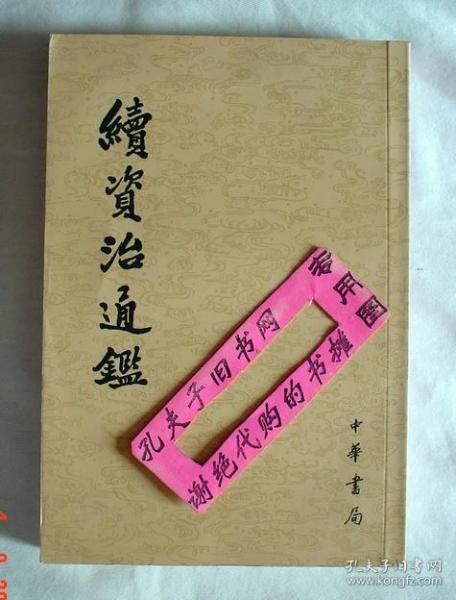 續資治通鑑
孔夫子旧书网
专用图
谢绝代购的书摊
中華書局
孔夫子旧书网
www.kongfz.com